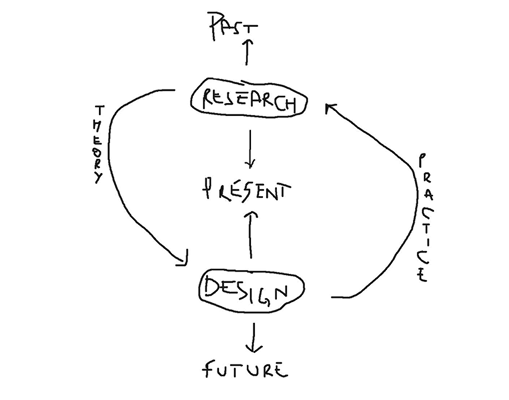 PAST
RESEARCH
THEORY
PRESENT
PRACTICE
DESIGN
FUTURE